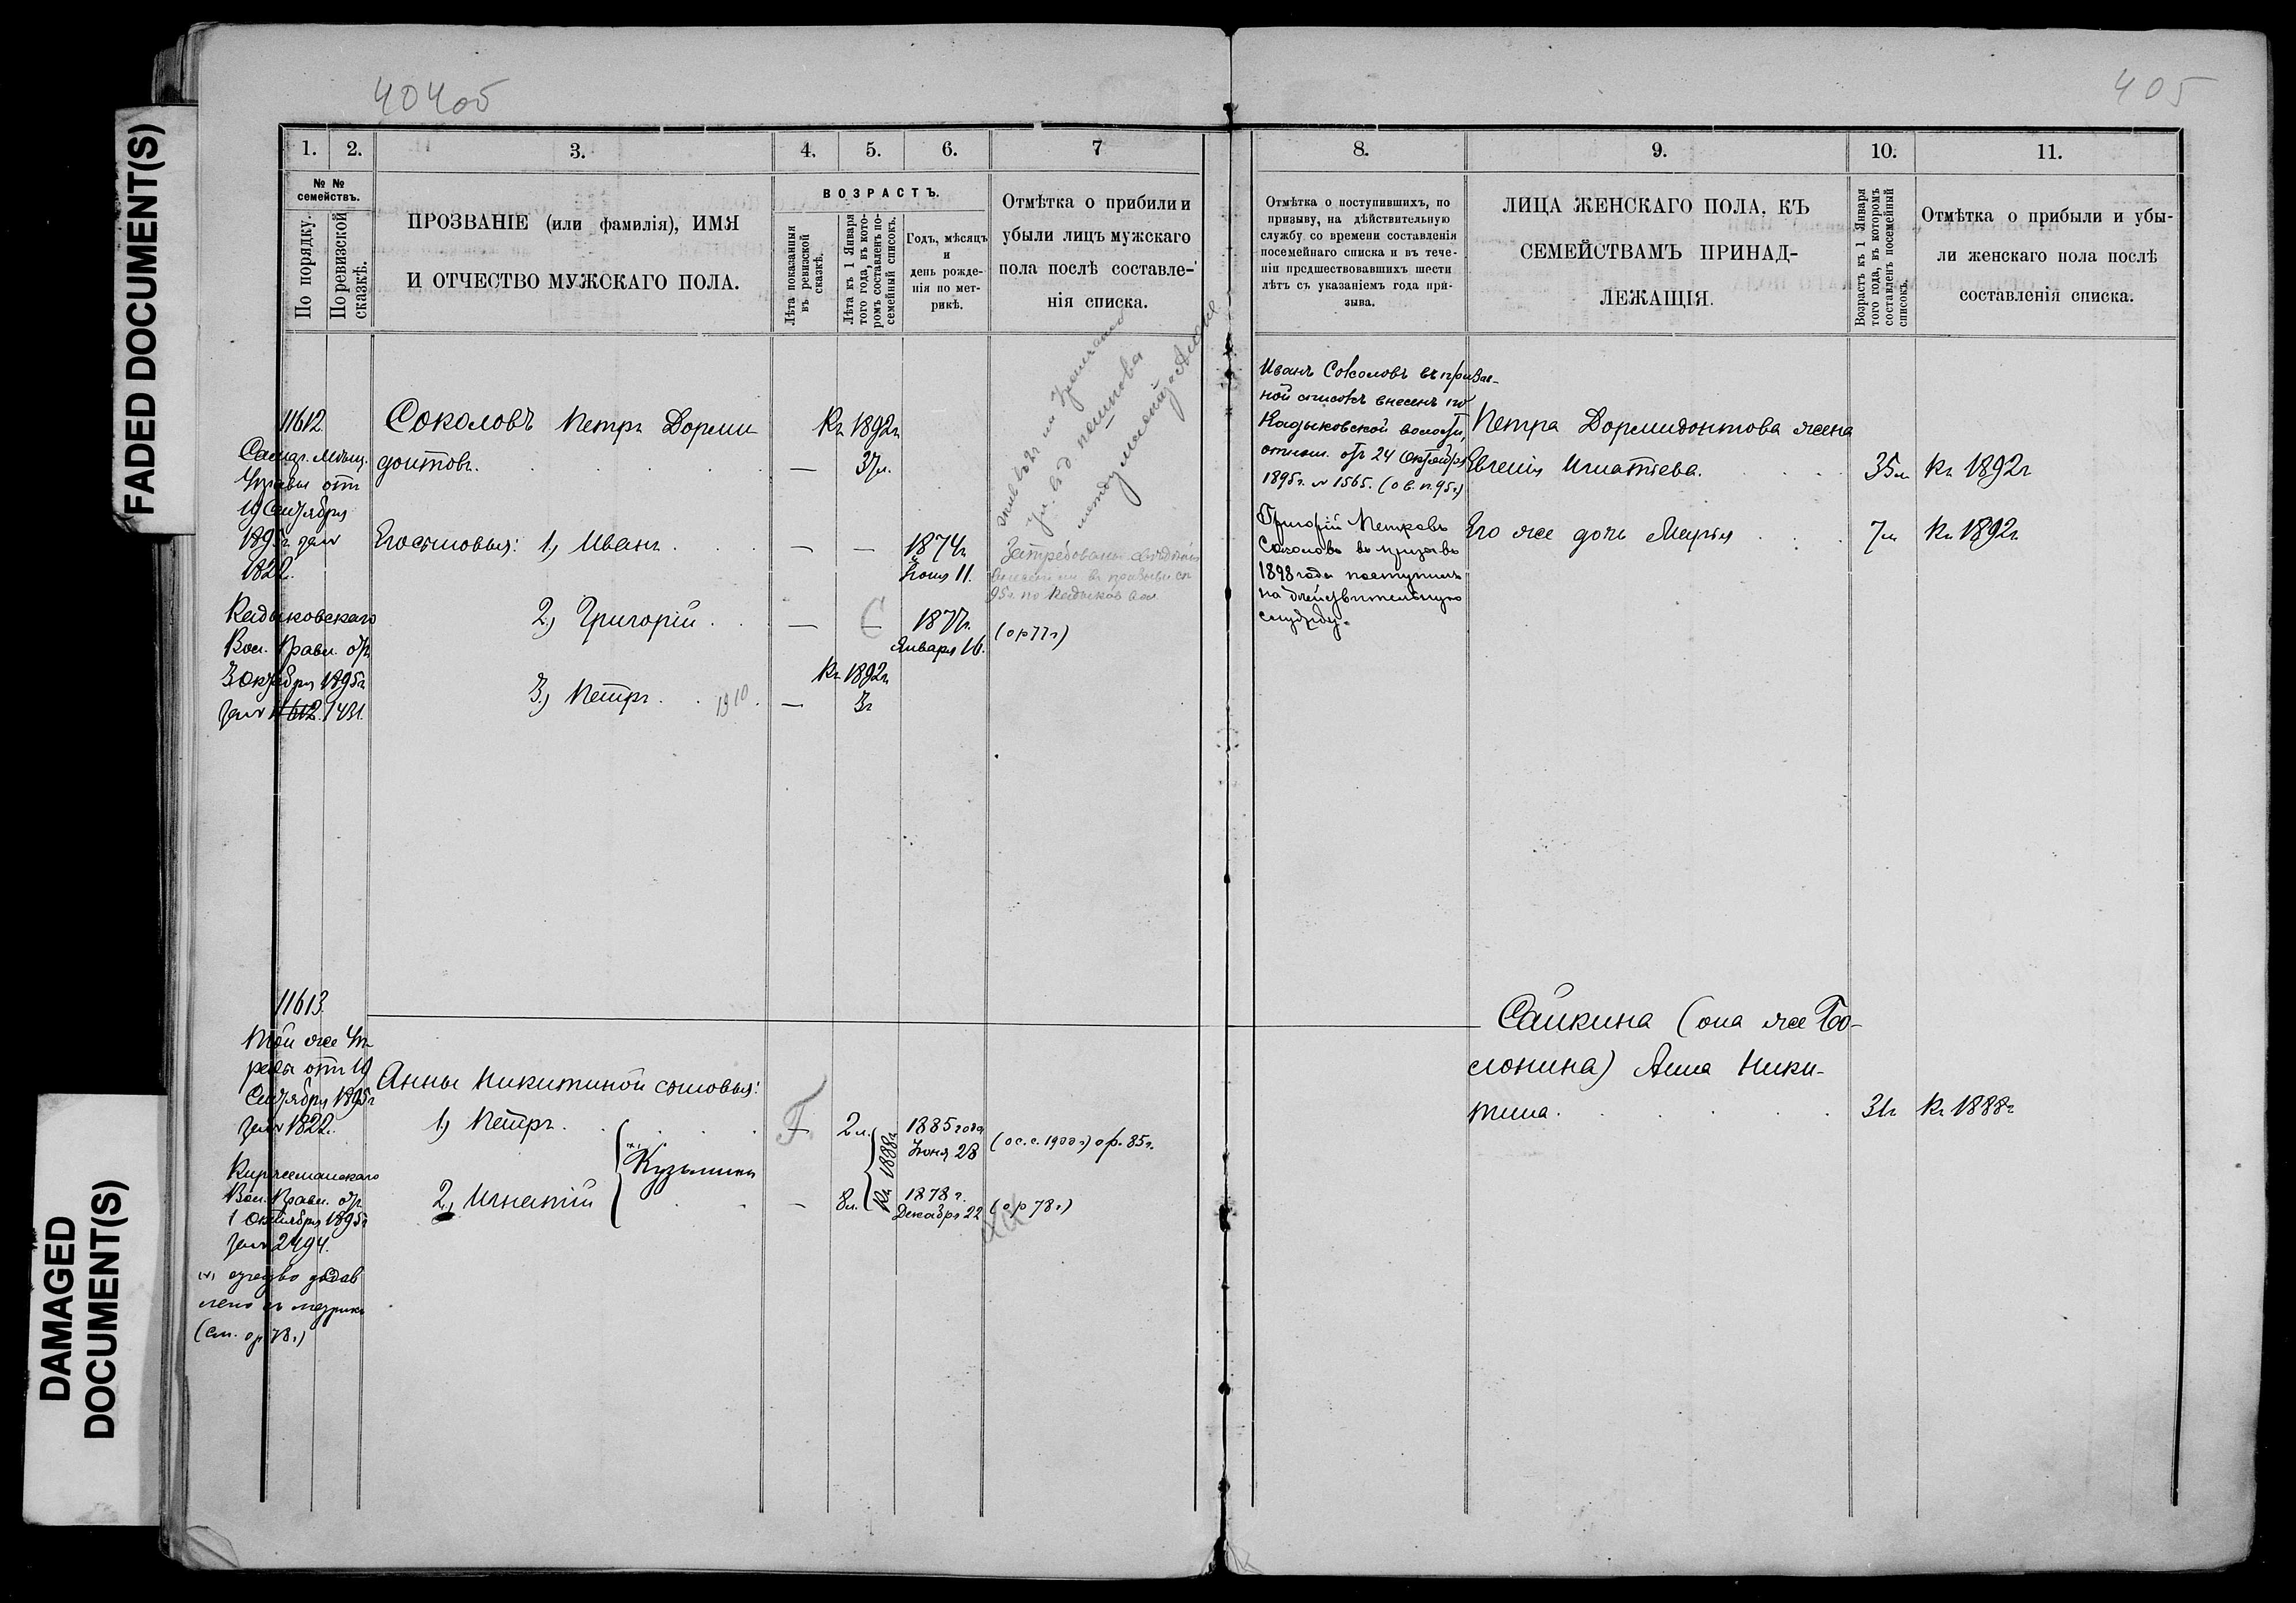 404об
405
FADED DOCUMENT(S)
DAMAGED
DOCUMENT(S)
1.
2.
3.
4.
5.
6.
7
№ №
семействъ.
По порядку.
По ревизской
сказкѣ.
ПРОЗВАНІЕ (или фамилія), ИМЯ
И ОТЧЕСТВО МУЖСКАГО ПОЛА.
ВОЗРАСТЪ.
Лѣта показанныя
въ ревизской
сказкѣ.
Лѣта къ 1 Января
того года, въ кото-
ромъ составленъ по-
семейный списокъ.
Годъ, мѣсяцъ
и
день рожде-
нія по мет-
рикѣ.
Отмѣтка о прибили и
убыли лицъ мужскаго
пола послѣ составле-
нія списка.
11612
Самар. Мѣщ.
Управы отъ
19 Сентября
1895г за №
1822.
Кадыковскаго
Вол. Правл. отъ
3 Октября 1895г
за № 1612. 1431.
Соколовъ Петръ Дорми
донтовъ.
Къ 1892г
— 37л.
Его сыновья: 1) Иванъ
— —
1874г
Іюля 11.
2) Григорій
— —
1877г.
Января 16.
(ор 77г)
3) Петръ
1910
Къ 1892г
— 3г
Затребованы свѣдѣнія
95г. по Кадыков вол
11613.
Той же Уп-
равы отъ 19
Сентября 1895г
за № 1822.
Вол. Правл. отъ
1 Октября 1895г
за № 2494.
(х) отчество добав
лено по метрикѣ
(см. ор 78г)
Анны Никитиной сыновья:
1) Петръ
2) Игнатій
(х) Кузьмины
— 2л.
— 8л.
Къ 1888г.
1885 года
Іюня 28
(ос. с. 1900г) ор. 85г.
1878г.
Декабря 22
(ор 78г)
8.
9.
10.
11.
Отмѣтка о поступившихъ, по
призыву, на дѣйствительную
службу со времени составленія
посемейнаго списка и въ тече-
ніи предшествовавшихъ шести
лѣтъ съ указаніемъ года при-
зыва.
ЛИЦА ЖЕНСКАГО ПОЛА, КЪ
СЕМЕЙСТВАМЪ ПРИНАД-
ЛЕЖАЩІЯ.
Возрастъ къ 1 Января
того года, въ которомъ
составленъ посемейный
списокъ.
Отмѣтка о прибыли и убы-
ли женскаго пола послѣ
составленія списка.
Иванъ Соколовъ въ призыв-
ной списокъ внесенъ по
Кадыковской волости,
отнош. отъ 24 Октября
1895г. № 1565. (о в. п. 95г.)
Григорій Петровъ
Соколовъ въ призывъ
1898 года поступилъ
на дѣйствительную
службу.
Петра Дормидонтова жена
Евгенія Игнатьева.
35л
Къ 1892г
Его же дочь Марія
7л
Къ 1892г
Сайкина (она же Бо-
слонина) Анна Ники-
тина.
31г
Къ 1888г